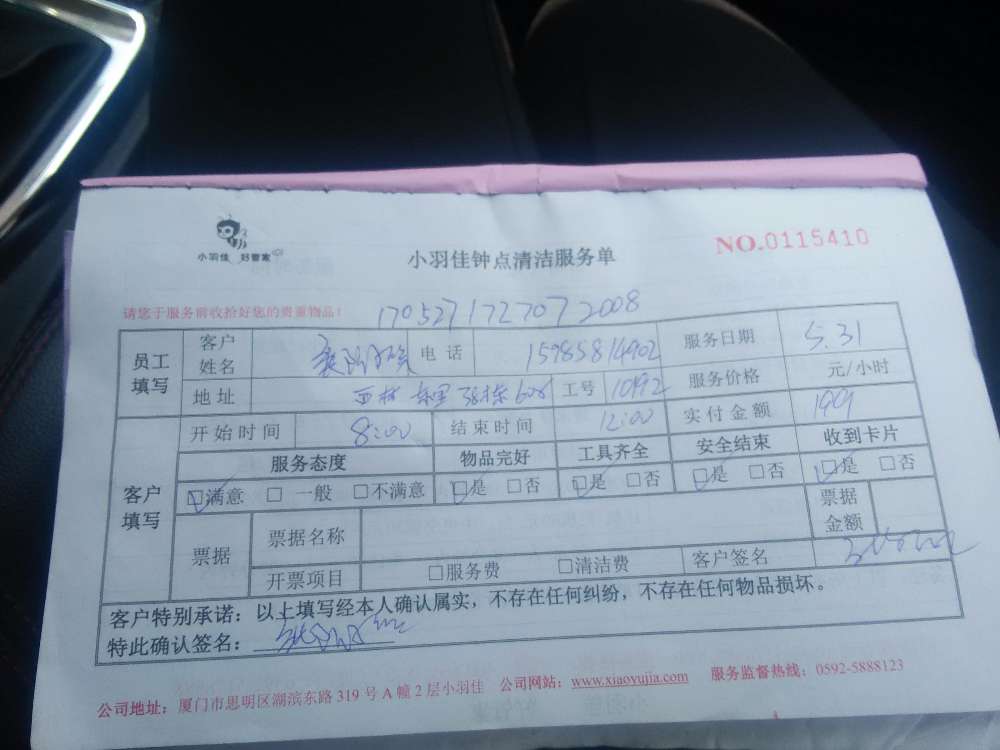 小羽佳 好管家
小羽佳钟点清洁服务单
NO.0115410
请您于服务前收拾好您的贵重物品！
1705271727072008
员工填写 客户姓名 电话 15985814902 服务日期 5.31
地址 工号 10192 服务价格 元/小时
客户填写 开始时间 8:00 结束时间 12:00 实付金额 199
服务态度 物品完好 工具齐全 安全结束 收到卡片
☑满意 □一般 □不满意 ☑是 □否 ☑是 □否 ☑是 □否 ☑是 □否
票据 票据名称 票据金额
开票项目 □服务费 □清洁费 客户签名
客户特别承诺：以上填写经本人确认属实，不存在任何纠纷，不存在任何物品损坏。
特此确认签名：
公司地址：厦门市思明区湖滨东路 319 号 A 幢 2 层小羽佳 公司网站：www.xiaoyujia.com 服务监督热线：0592-5888123